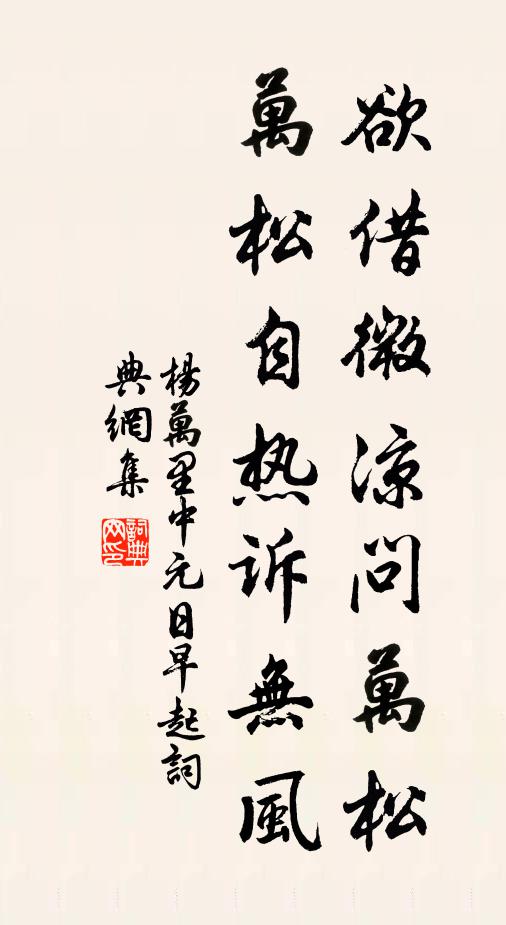 欲借微涼問萬松
萬松自热訴無風
楊萬里中元日早起詞
典網集
詞典
网印